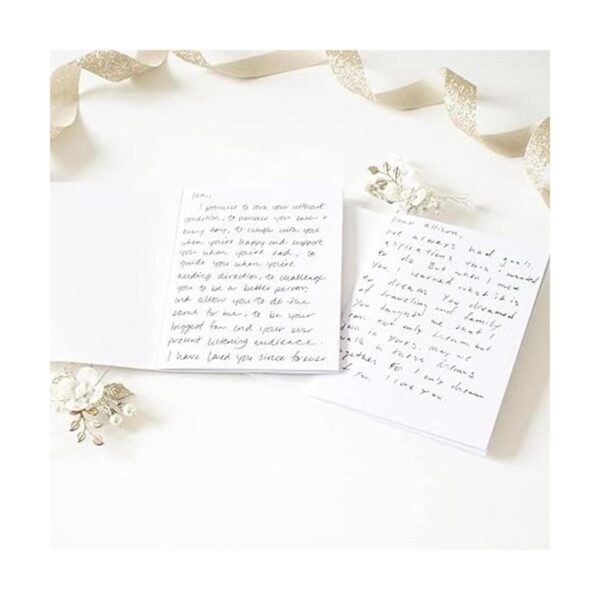 I promise to love you without
condition, to honour you each +
every day, to laugh with you
when you're happy and support
you when you're sad, to
guide you when you're
needing direction, to challenge
you to be a better person
and allow you to do the
same for me, to be your
biggest fan and your ever
present listening audience.
I have loved you since forever
Dear Allison,
I've always had goals
aspirations this I wanted
to do. But when I met
you I learned what it is
to dream. You dreamed
of traveling and family.
You taught me that I
can not only dream but
join in yours. may we
walk in these dreams
together. For I only dream
of you. I love you